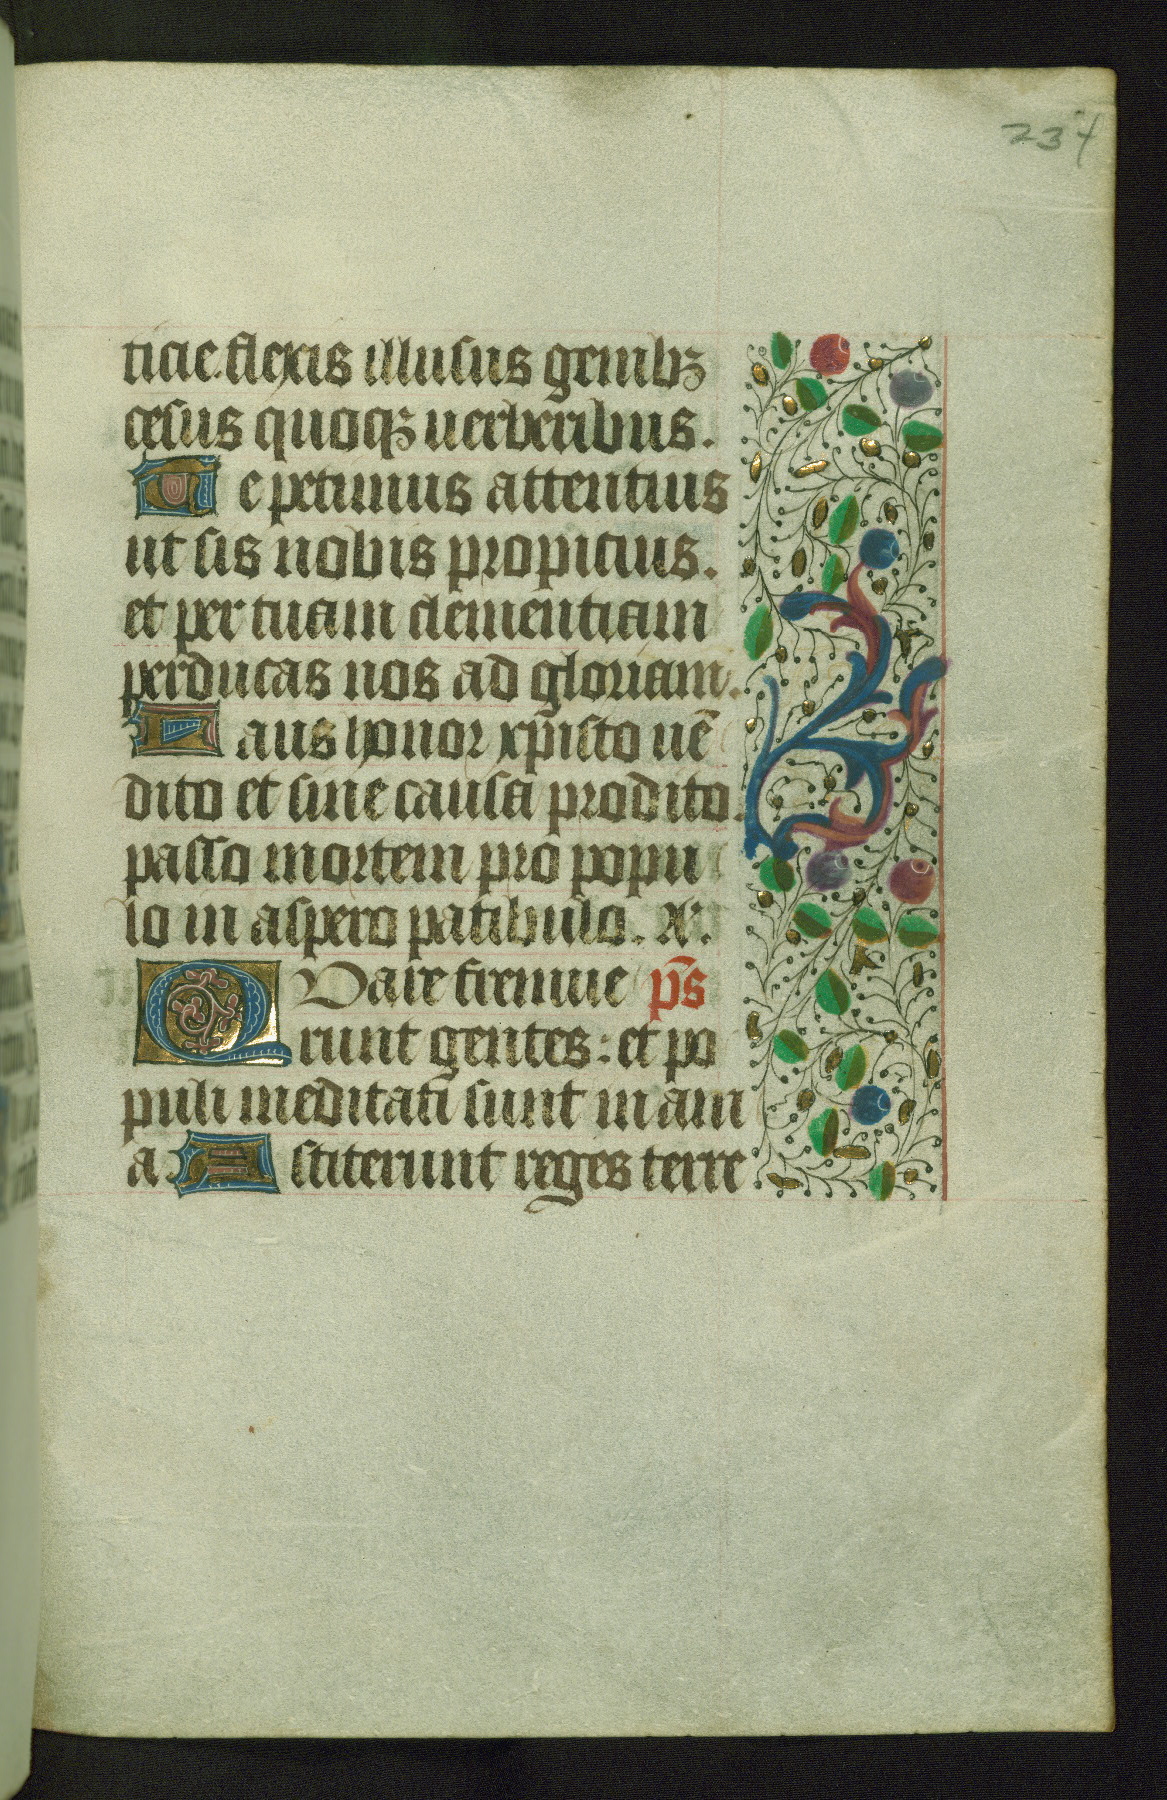 234
ticie flexis illusus genibꝫ
cesus quoqꝫ uerberibus.
Te petimus attentius
ut sis nobis propicius.
et per tuam clementiam
perducas nos ad gloriam.
Laus honor xpisto uē
dito et sine causa prodito.
passo mortem pro popu
lo in aspero patibulo. A.
Quare fremue ps̄
runt gentes: et po
puli meditati sunt inani
a. Astiterunt reges terre